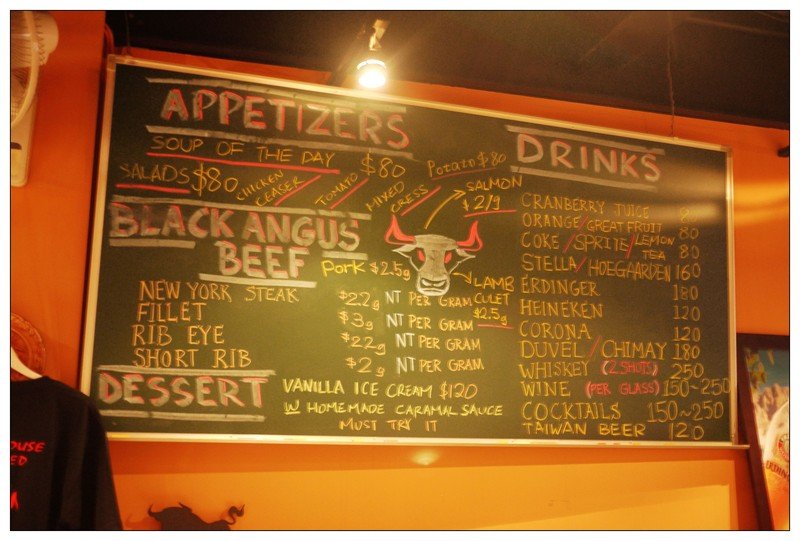 APPETIZERS
SOUP OF THE DAY $80
Potato $80
SALADS $80 CHICKEN CEASER / TOMATO / MIXED CRESS
SALMON
$2/g
BLACK ANGUS
BEEF
Pork $2.5g
LAMB
CULET
$2.5g
NEW YORK STEAK $2.2g NT PER GRAM
FILLET $3g NT PER GRAM
RIB EYE $2.2g NT PER GRAM
SHORT RIB $2g NT PER GRAM
DESSERT
VANILLA ICE CREAM $120
W HOMEMADE CARAMAL SAUCE
MUST TRY IT
DRINKS
CRANBERRY JUICE 80
ORANGE/GREAT FRUIT 80
COKE/SPRITE/LEMON TEA 80
STELLA/HOEGAARDEN 160
ERDINGER 180
HEINEKEN 120
CORONA 120
DUVEL/CHIMAY 180
WHISKEY (2 SHOTS) 250
WINE (PER GLASS) 150~250
COCKTAILS 150~250
TAIWAN BEER 120